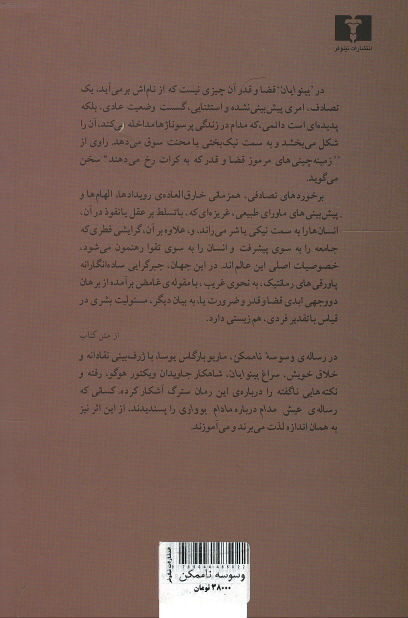 انتشارات نیلوفر
در "بینوایان" قضا و قدر آن چیزی نیست که از نام‌اش برمی‌آید، یک
تصادف، امری پیش‌بینی‌نشده و استثنایی، گسست وضعیت عادی، بلکه
پدیده‌ای است دائمی، که مدام در زندگی پرسوناژها مداخله می‌کند، آن را
شکل می‌بخشد و به سمت نیک‌بختی یا محنت سوق می‌دهد. راوی از
"زمینه‌چینی‌های مرموز قضا و قدر که به کرات رخ می‌دهند" سخن
می‌گوید.
برخوردهای تصادفی، همزمانی خارق‌العاده‌ی رویدادها، الهام‌ها و
پیش‌بینی‌های ماورای طبیعی، غریزه‌ای که، با تسلط بر عقل یا نفوذ در آن،
انسان‌ها را به سمت نیکی یا شر می‌راند، و، علاوه بر آن، گرایشی فطری که
جامعه را به سوی پیشرفت و انسان را به سوی تقوا رهنمون می‌شود،
خصوصیات اصلی این عالم‌اند. در این جهان، جبرگرایی ساده‌انگارانه
پاورقی‌های رمانتیک، به نحوی غریب، با مقوله‌ی غامض برآمده از برهان
دووجهی ابدی قضا و قدر و ضرورت یا، به بیان دیگر، مسئولیت بشری در
قیاس با تقدیر فردی، هم‌زیستی دارد.
از متن کتاب
در رساله‌ی وسوسهٔ ناممکن، ماریو بارگاس یوسا، با ژرف‌بینی نقادانه و
خلاق خویش، سراغ بینوایان، شاهکار جاویدان ویکتور هوگو، رفته و
نکته‌هایی ناگفته را درباره‌ی این رمان سترگ آشکار کرده. کسانی که
رساله‌ی عیش مدام درباره مادام بوواری را پسندیدند، از این اثر نیز
به همان اندازه لذت می‌برند و می‌آموزند.
انتشارات نیلوفر
وسوسه ناممکن
۳۸۰۰۰ تومان